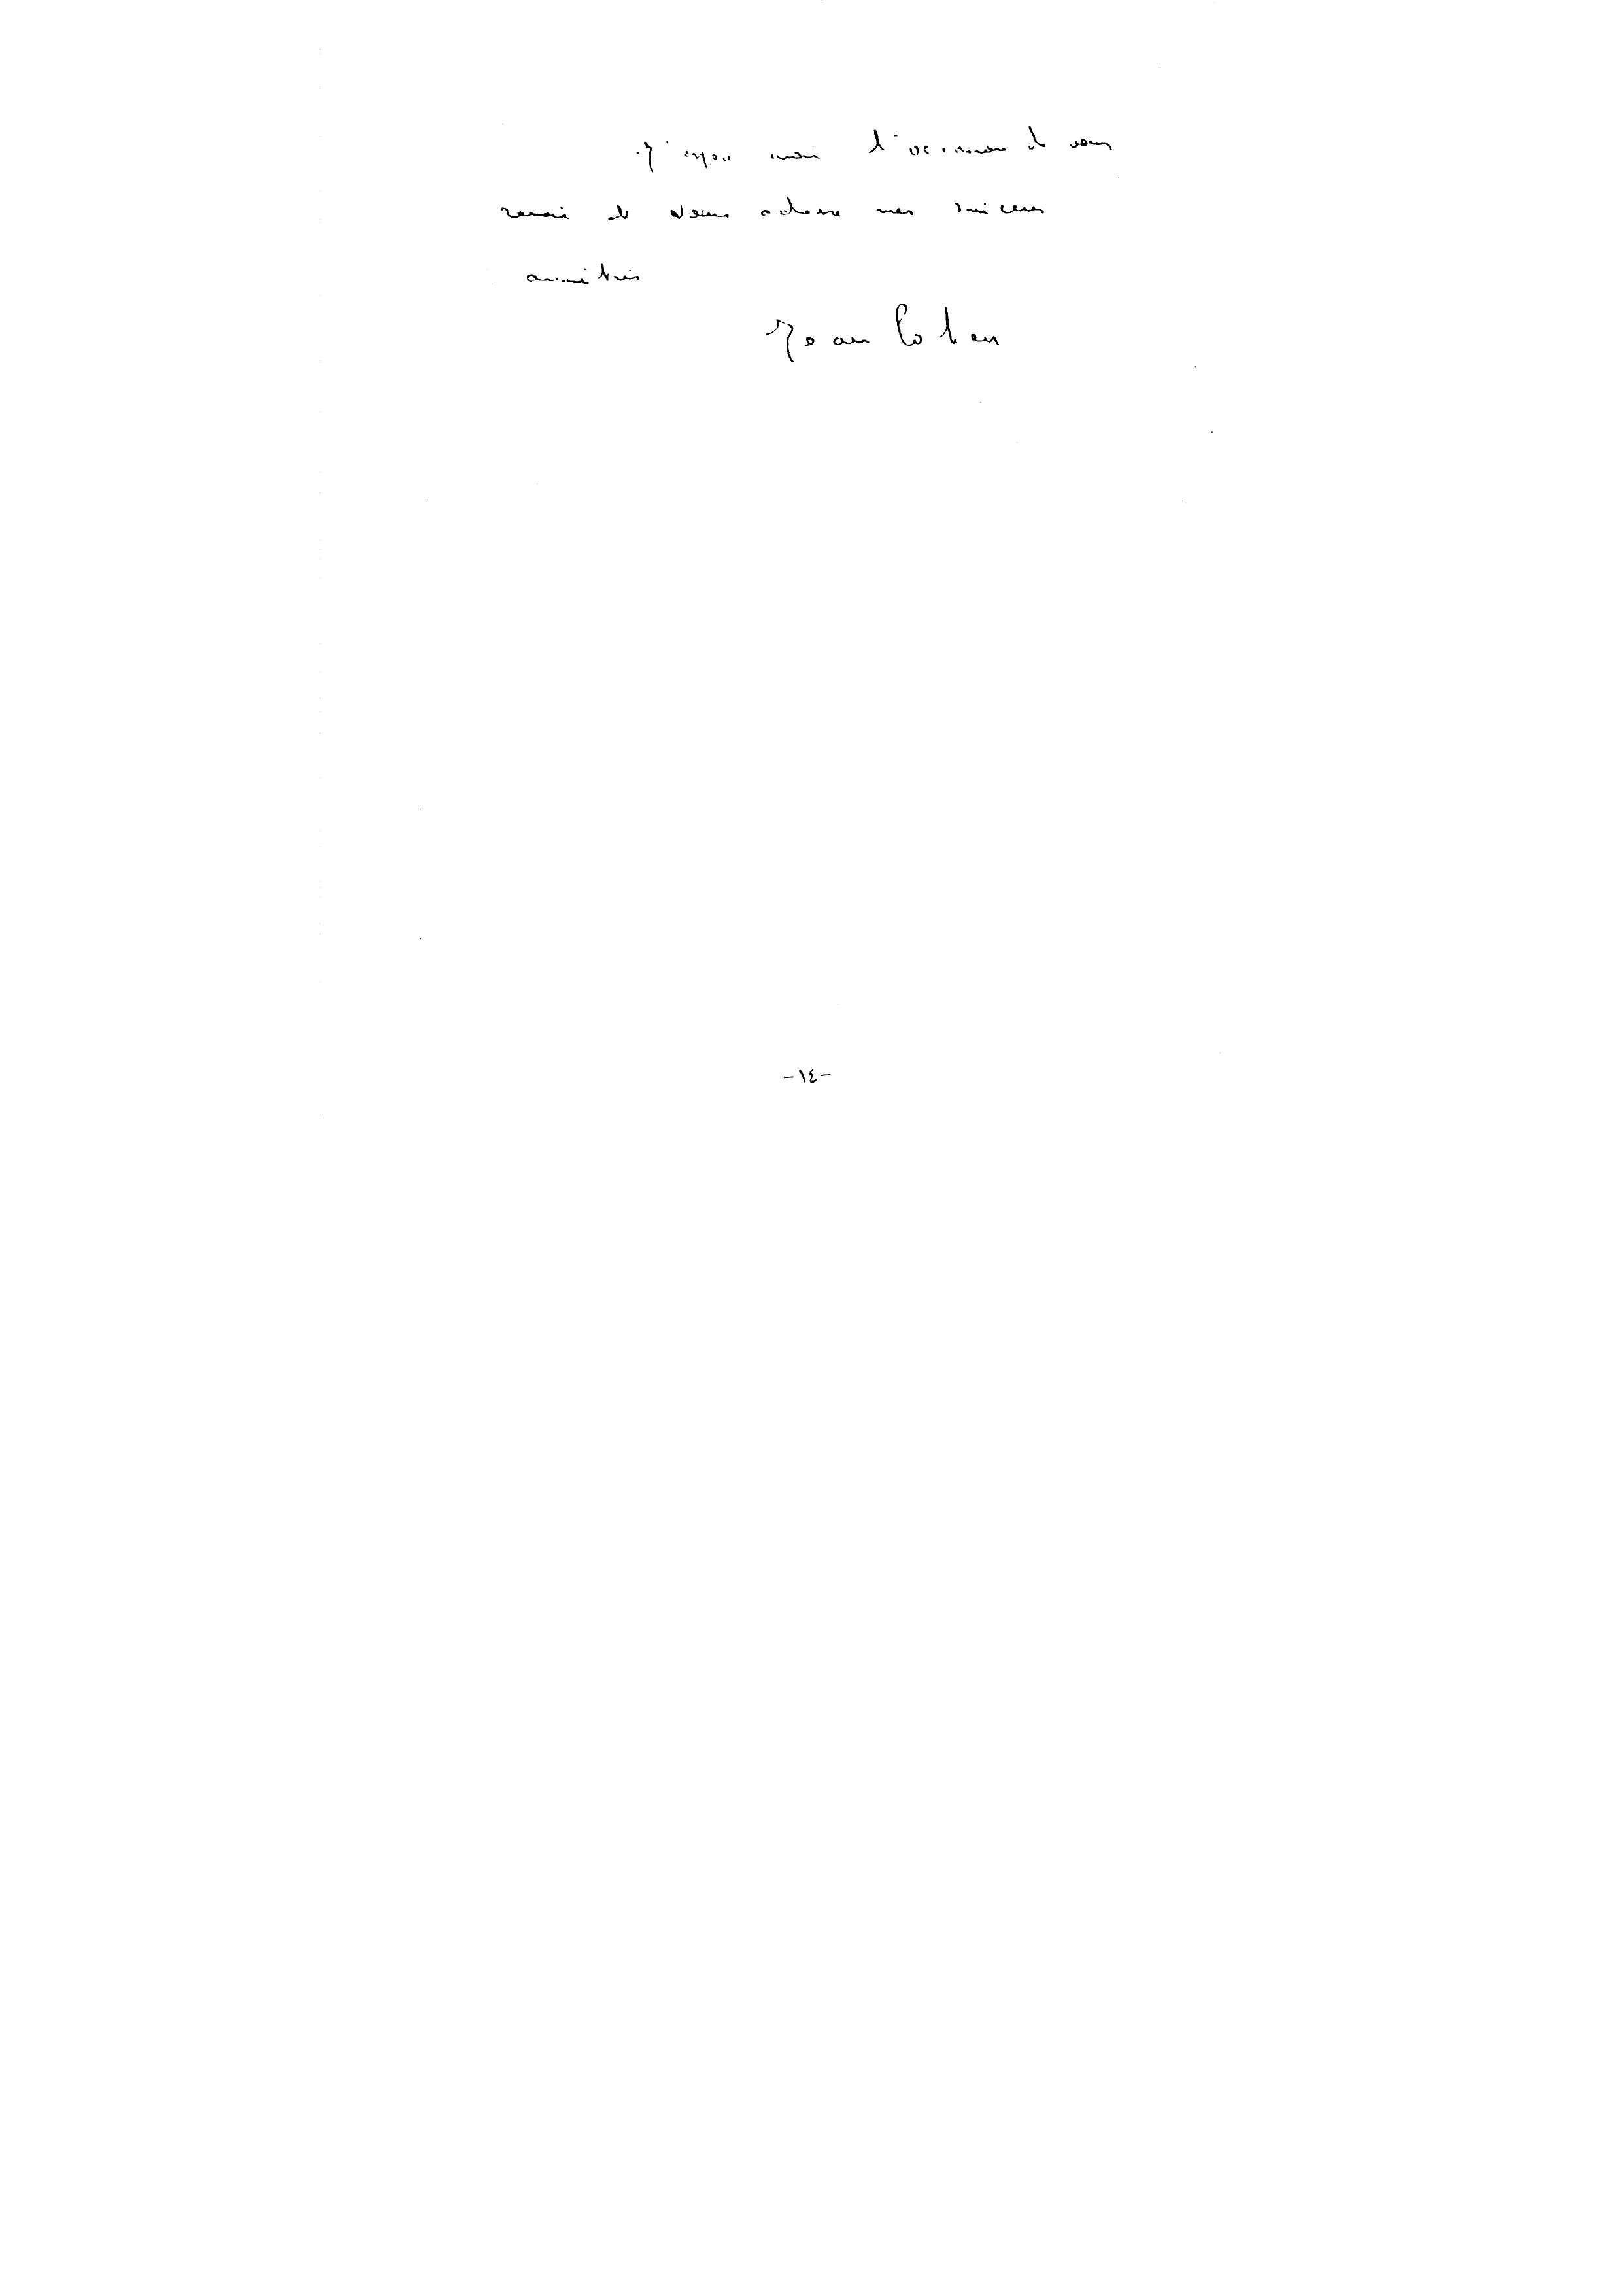 J'espère avoir l'occasion de vous
revoir et vous adresse mes sincères
amitiés
Jean Cohen
-١٤-